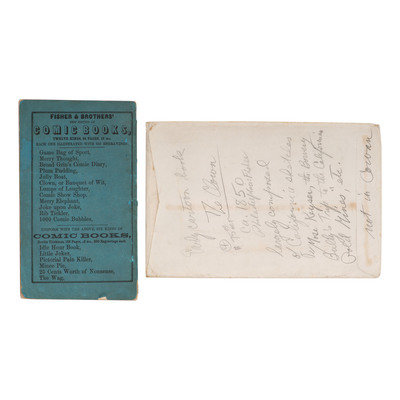 FISHER & BROTHERS'
COMIC BOOKS,
EACH ONE ILLUSTRATED WITH 100 ENGRAVINGS
Game Bag of Sport,
Merry Thought,
Broad Grin's Comic Diary,
Plum Pudding,
Jolly Boat,
Clown, or Banquet of Wit,
Lumps of Laughter,
Comic Show Shop,
Merry Elephant,
Joke upon Joke,
Rib Tickler,
1000 Comic Bubbles.
UNIFORM WITH THE ABOVE, SIX KINDS OF
COMIC BOOKS,
Idle Hour Book,
Little Joker,
Pictorial Pain Killer,
Mince Pie,
25 Cents Worth of Nonsense,
The Wag.
Early cartoon book
The Clown
Ca. 1850
Philadelphia
largely composed
of
Mose Keyser, the Bowery
Bully's Trip to the California
Gold Mines etc.
not in Cowan